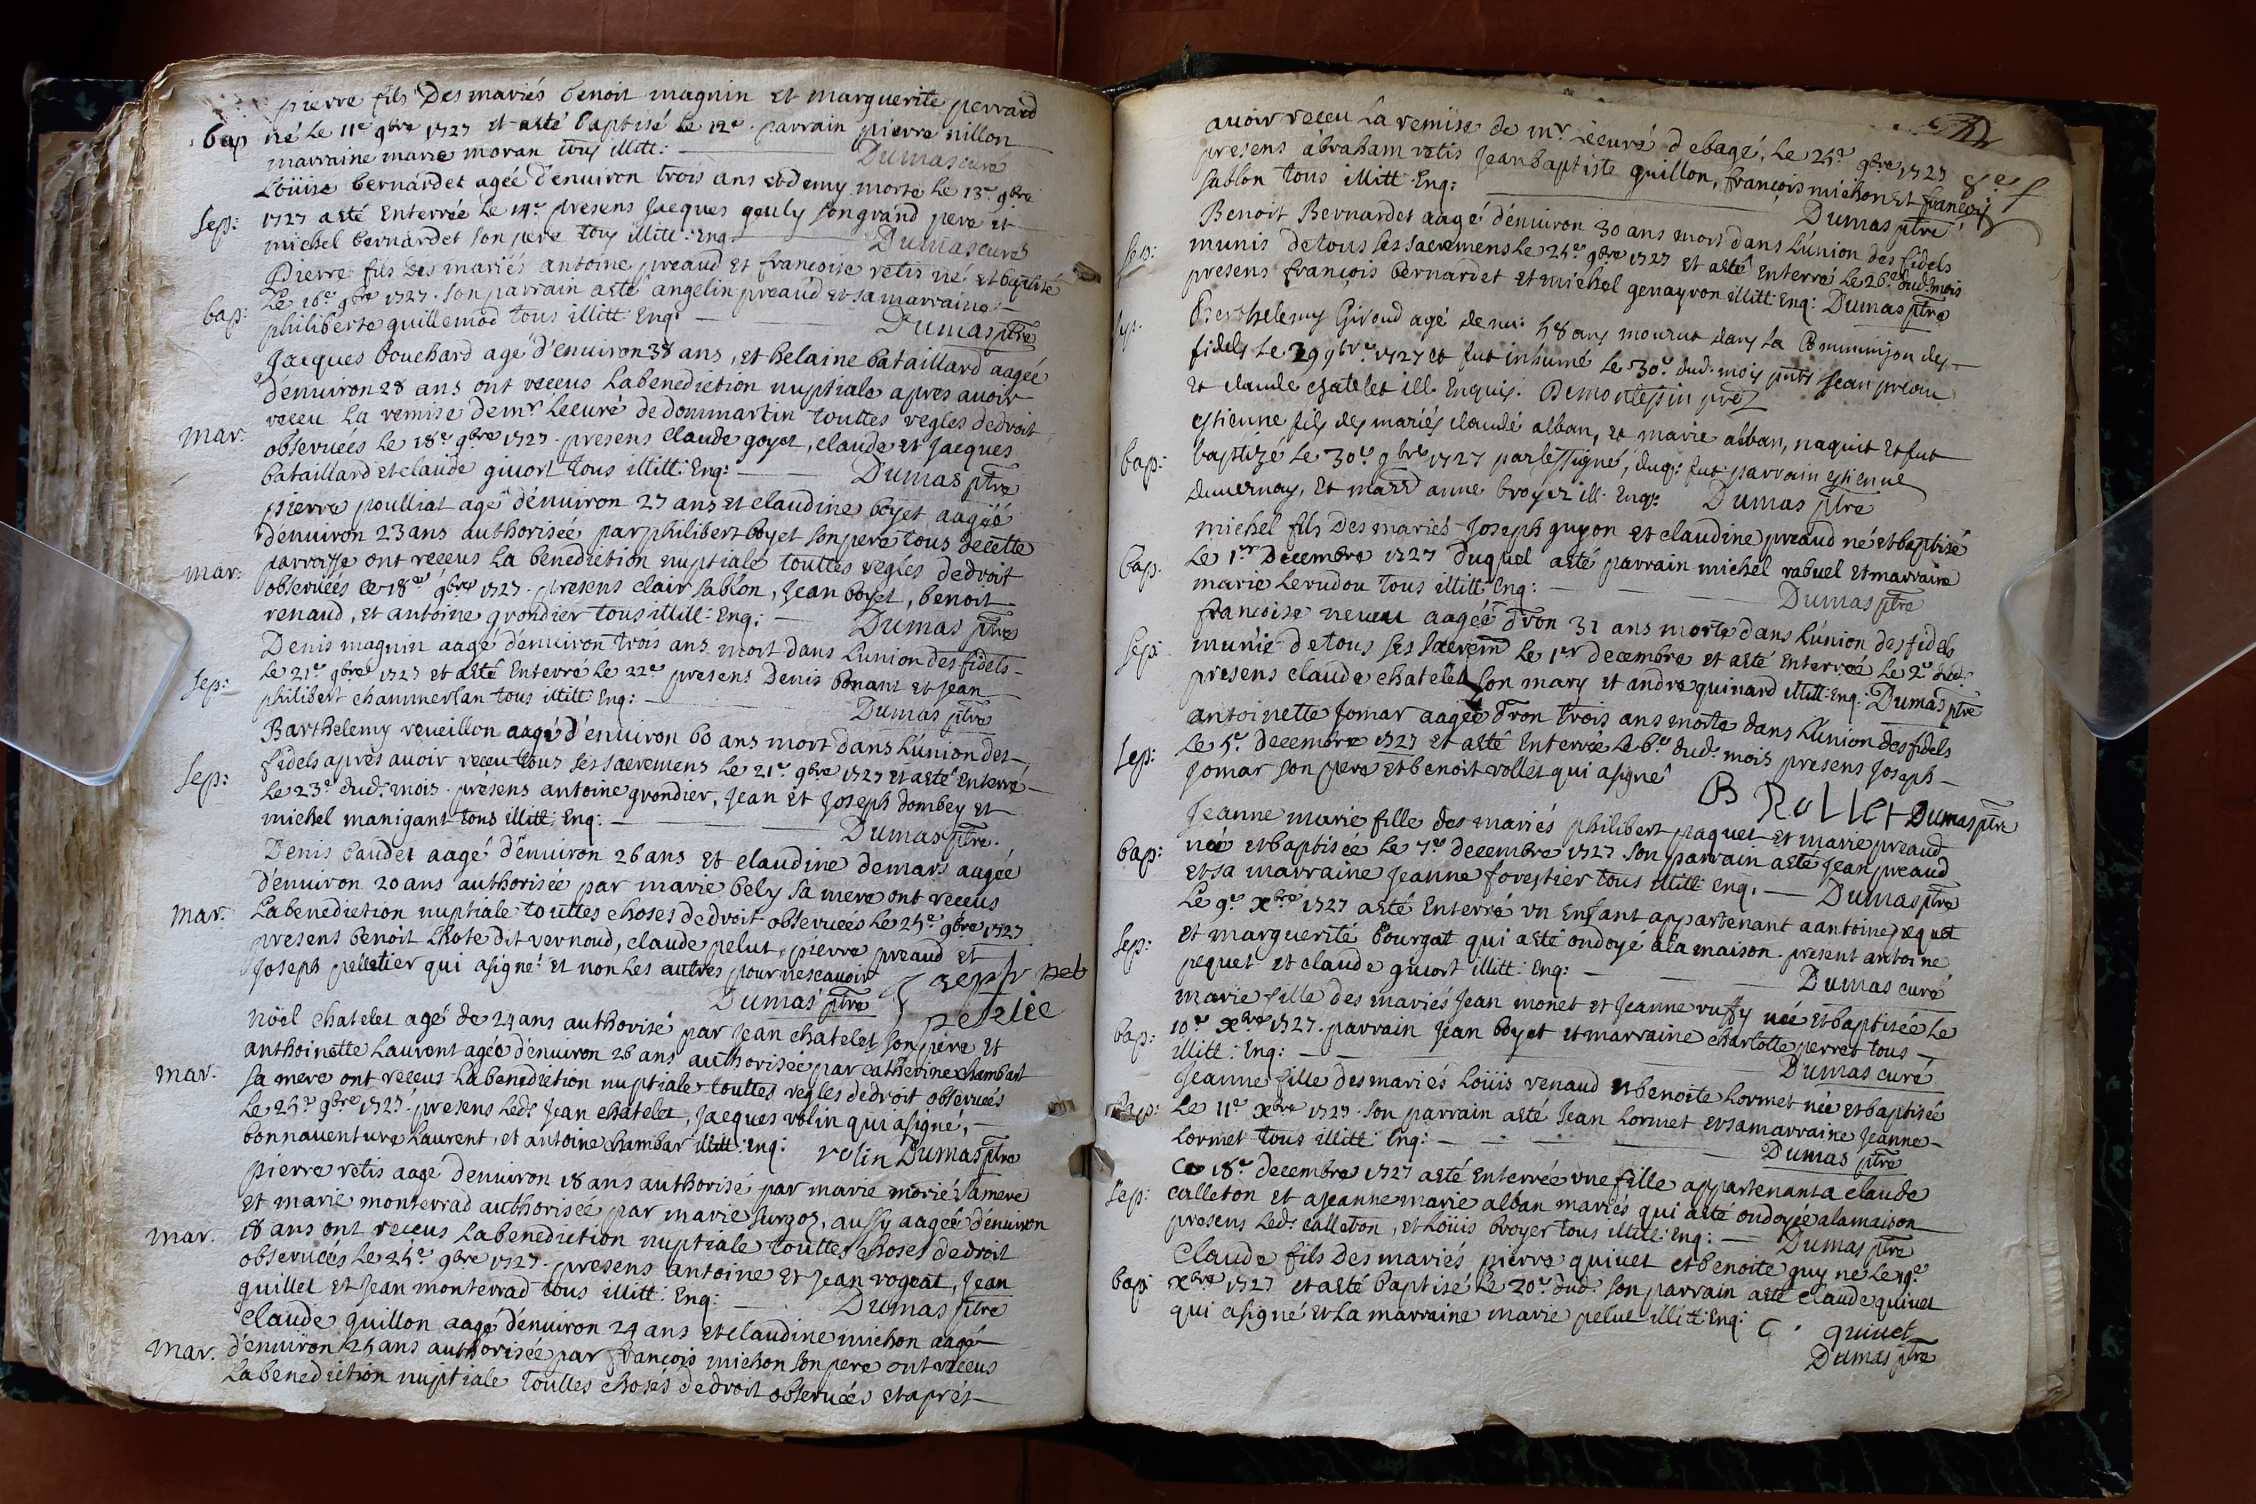 pierre fils Des mariés benoit magnin et marguerite perrard
bap né Le 11e 9bre 1727 et aeté baptisé Le 12e. parrain pierre nillon
marraine marie moran tous illitt: Dumas curé
Loüise bernardet agée d'enuiron trois ans et demy morte Le 13e 9bre
sep: 1727 aeté Enterrée Le 14e presens Jacques geuly son grand pere et
michel bernardet son pere tous illitt: Enq. Dumas curé
Pierre fils des mariés antoine preaud et francoise retis né et baptisé
bap: Le 16e 9bre 1727. son parrain aeté angelin preaud et sa marraine
philiberte guillemod tous illitt Enq: Dumas ptre
Jacques bouchard agé d'enuiron 38 ans, et helaine bataillard aagée
d'enuiron 28 ans ont receus La benediction nuptiale apres auoir
receu La remise de mr Lecuré de dommartin touttes regles de droit
mar. obseruées Le 18e 9bre 1727. presens claude goyet, claude et Jacques
bataillard et claude giuort tous illitt: Enq: Dumas ptre
pierre poulliat agé d'enuiron 27 ans et claudine boyet aagée
d'enuiron 23 ans authorisée par philibert boyet son pere tous de cette
mar: parroisse ont receus La benediction nuptiale touttes regles de droit
obseruées ce 18e 9bre 1727. presens clair sablon, Jean boyet, benoit
renaud, et antoine grondier tous illitt: Enq: Dumas ptre
Denis magnin aagé d'enuiron trois ans mort dans L'union des fidels
sep: Le 21e 9bre 1727 et aeté Enterré Le 22e presens Denis bonant et Jean
philibert chammerlan tous illitt Enq: Dumas ptre
Barthelemy reueillon aagé d'enuiron 60 ans mort dans L'union des
sep: fidels apres auoir receu tous ses sacremens Le 21e 9bre 1727 et aeté Enterré
Le 23e dud: mois. présens antoine grondier, Jean et Joseph dombey et
michel manigant tous illitt: Enq: Dumas ptre.
Denis baudet aagé d'enuiron 26 ans et claudine demars aagée
d'enuiron 20 ans authorisée par marie bely sa mere ont receus
mar. La benediction nuptiale touttes choses de droit obseruées Le 25e 9bre 1727
presens benoit Lhote dit vernoud, claude pelut, pierre preaud et
Joseph pelletier qui asigné et non Les autres pour ne scauoir
Dumas ptre
Noël chatelet agé de 24 ans authorisé par Jean chatelet son père et
anthoinette Laurent agée d'enuiron 26 ans authorisée par catherine chambart
mar. sa mere ont receus La benediction nuptiale touttes regles de droit obseruées
Le 25e 9bre 1727. presens Led: Jean chatelet, Jacques volin qui asigné,
bonnauenture Laurent, et antoine chambar illitt: Enq: volin Dumas ptre
pierre retis aagé d'enuiron 18 ans authorisé par marie morié sa mere
et marie monterrad authorisée par marie surgoz, aussy aagée d'enuiron
mar. 18 ans ont receus La benediction nuptiale touttes choses de droit
obseruées Le 25e 9bre 1727. presens antoine et Jean rogeat, Jean
guillet et Jean monterrad tous illitt: Enq: Dumas ptre
claude guillon aagé d'enuiron 24 ans et claudine michon aagé
mar. d'enuiron 25 ans authorisée par francois michon son pere ont receus
La benediction nuptiale touttes choses de droit obseruées et aprés
auoir receu La remise de mr Lecuré de bagé, Le 25e 9bre 1727
presens abraham retis Jean baptiste guillon, françois michon et françois
sablon tous illitt Enq: Dumas ptre
Benoit Bernardet aagé d'enuiron 30 ans mors dans L'union des fidels
sep: munis de tous ses sacremens Le 25e 9bre 1727 et aeté Enterré Le 26e dud: mois
presens françois bernardet et michel genayron illitt: Enq: Dumas ptre
sep. Berthelemy Giroud agé denui: 58 ans mourut dans La Communion des
fidels Le 29 9bre 1727 et fut inhumé Le 30e dud: mois pnts Jean preau
et claude chatelet ill. Enquis. Demontessin
estienne fils des mariés claude alban, et marie alban, naquit et fut
bap: baptizé Le 30e 9bre 1727 par Le ssigné, duq: fut parrain estienne
duuernay, et marr anne broyer ill. Enq: Dumas ptre
michel fils des mariés Joseph guyon et claudine preaud né et baptisé
bap. Le 1er Decembre 1727 duquel aeté parrain michel rabuel et marraine
marie Lerudou tous illitt: Enq: Dumas ptre
francoise neueu aagée d'ron 31 ans morte dans L'union des fidels
sep: munie de tous ses sacrem Le 1er decembre et aeté enterrée Le 2e dud:
presens claude chatelet son mary et andre guinard illitt Enq: Dumas ptre
antoinette Jomar aagée d'ron trois ans morte dans L'union des fidels
sep: Le 5e decembre 1727 et aeté Enterrée Le 6e dud: mois presens Joseph
Jomar son pere et benoit rollet qui asigné
B Rollet Dumas ptre
Jeanne marie fille des mariés philibert paquet et marie preaud
bap: née et baptisée Le 7e decembre 1727. son parrain aeté Jean preaud
et sa marraine Jeanne forestier tous illitt: Enq. Dumas ptre
Le 9e xbre 1727 aeté Enterré vn Enfant appartenant a antoine pequet
sep: et marguerite bourgat qui aeté ondoyé ala maison. present antoine
pequet et claude giuort illitt: Enq: Dumas curé
marie fille des mariés Jean monet et Jeanne ruffy née et baptisée Le
bap: 10e xbre 1727. parrain Jean boyet et marraine charlotte perret tous
illitt: Enq: Dumas curé
Jeanne fille des mariés Loüis renaud et benoite Lormet née et baptisée
bap: Le 11e xbre 1727. son parrain aeté Jean Lormet et sa marraine Jeanne
Lormet tous illitt: Enq: Dumas ptre
Ce 18e decembre 1727 aeté Enterrée vne fille appartenant a claude
sep: calleton et a Jeanne marie alban mariés qui aeté ondoyée ala maison
presens Led: calleton, et Loüis broyer tous illitt: Enq: Dumas ptre
Claude fils des mariés pierre quiuet et benoite guy né Le 19e
bap: xbre 1727 et aeté baptisé Le 20e dud: son parrain aeté claude quiuet
qui asigné et La marraine marie pelut illitt: Enq:
C quiuet
Dumas ptre